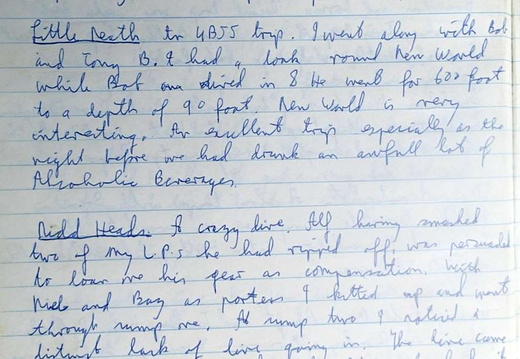 Little Neath tr UBSS trip. I went along with Bob
and Tony B. & had a look round New World
while Bob dived in 8 He went for 600 foot
to a depth of 90 foot. New World is very
interesting. An excellent trip especially as the
night before we had drunk an awfull lot of
Alcoholic Beverages.
Nidd Heads. A crazy dive. Alf having smashed
two of my L.P.s he had ripped off, was persuaded
to loan me his gear as compensation. With
and Baz as porters I kitted up and went
through sump one. At sump two I noticed a
distinct lack of line going in. The line came